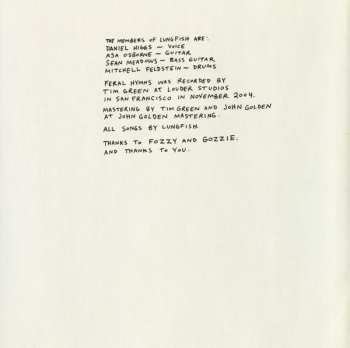 THE MEMBERS OF LUNGFISH ARE:
DANIEL HIGGS — VOICE
ASA OSBORNE — GUITAR
SEAN MEADOWS — BASS GUITAR
MITCHELL FELDSTEIN — DRUMS
FERAL HYMNS WAS RECORDED BY
TIM GREEN AT LOUDER STUDIOS
IN SAN FRANCISCO IN NOVEMBER 2004.
MASTERING BY TIM GREEN AND JOHN GOLDEN
AT JOHN GOLDEN MASTERING.
ALL SONGS BY LUNGFISH
THANKS TO FOZZY AND GOZZIE.
AND THANKS TO YOU.